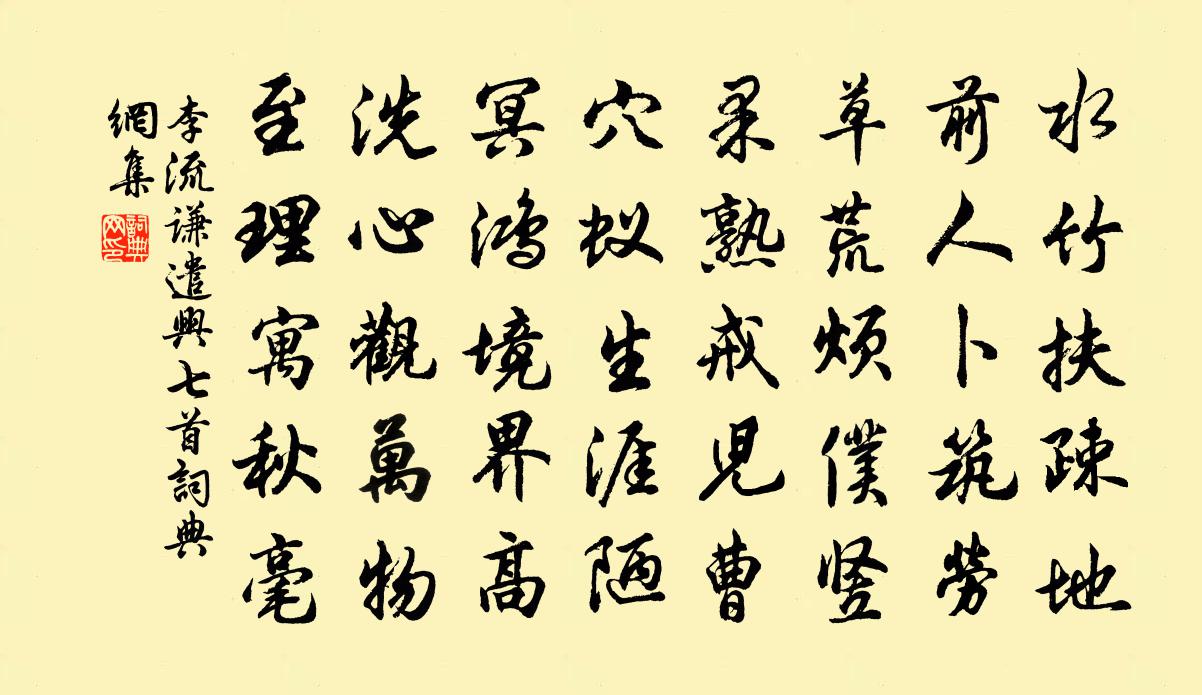 水竹扶疎地
前人卜筑勞
草荒煩僕竖
果熟戒児曹
穴蚁生涯陋
冥鸿境界高
洗心觀萬物
至理寓秋毫
李流谦遣興七首詞典
網集
詞典
网印